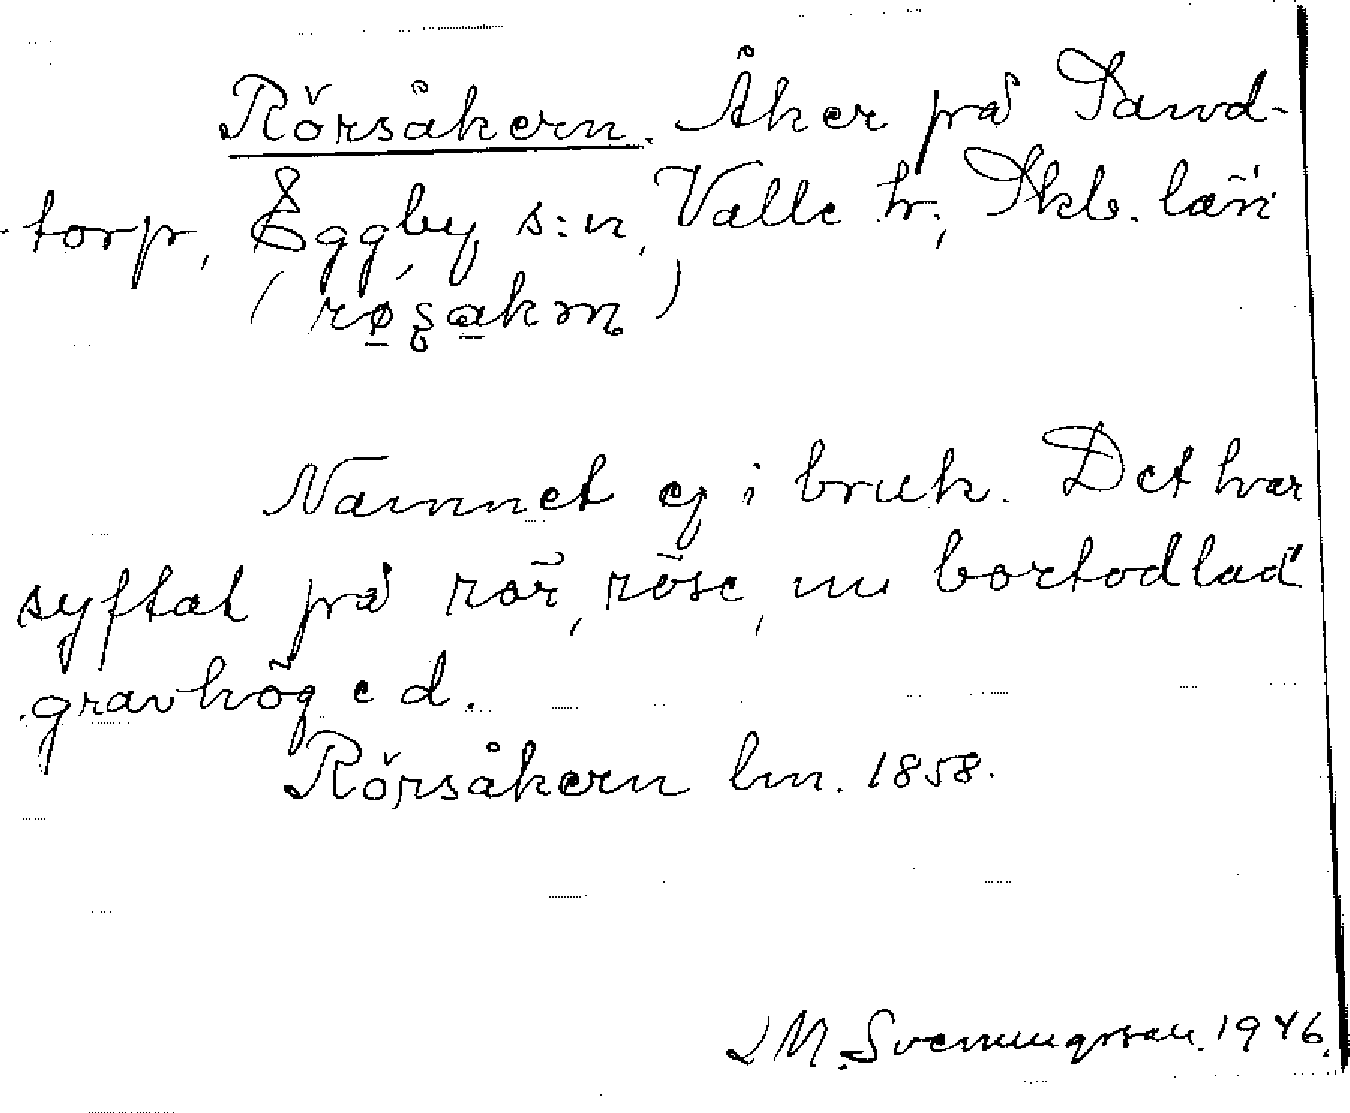 Rörsåkern. Åker på Sand-
torp, Eggby s:n, Valle hr, Skb. län
(røʂakɳ)
Namnet ej i bruk. Det har
syftat på rör, röse, nu bortodlad
gravhög e d.
Rörsåkern lm. 1858.
Svenungsson. 1946.